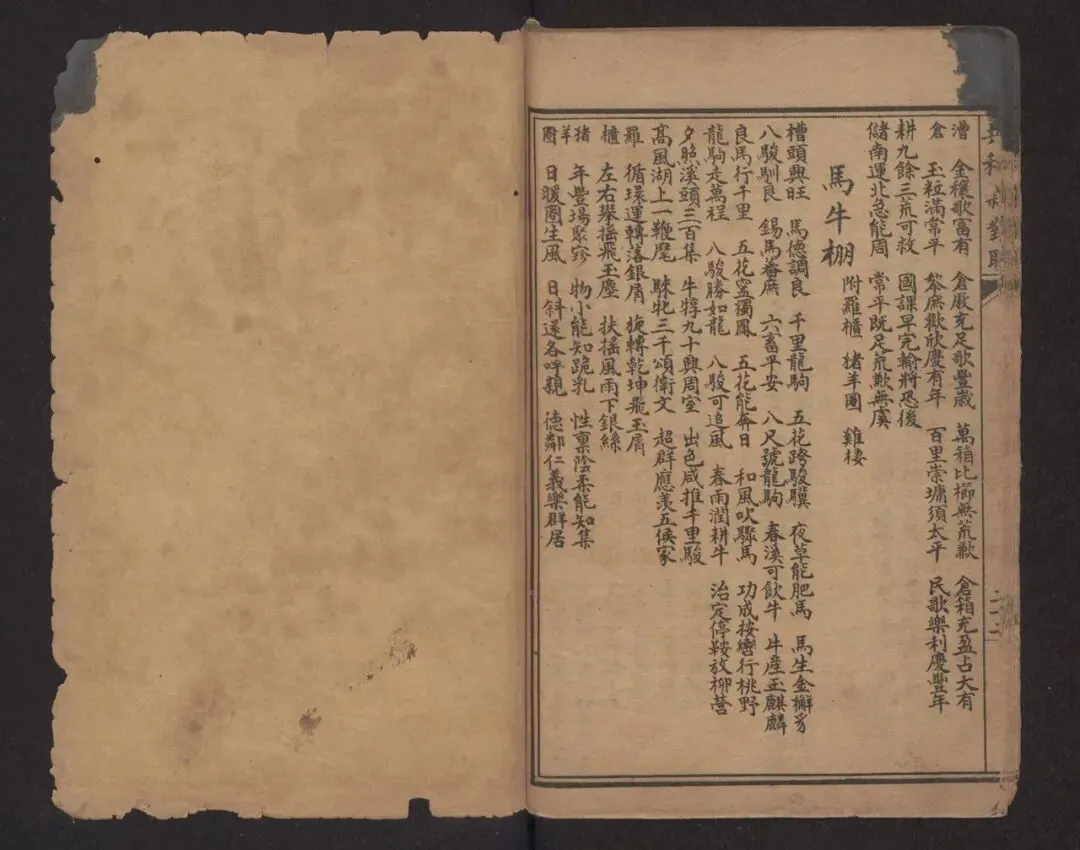 漕 金穰歌富有 倉廒充足歌豐歲 萬箱比櫛無荒歉 倉箱充盈占大有
倉 玉粒滿常平 黎庶歡欣慶有年 百里崇墉須太平 民歌樂利慶豐年
耕九餘三荒可救 國課早完輸將恐後
儲南運北急能周 常平既足荒歉無虞
馬牛棚 附羅櫃 猪羊圈 雞棲
槽頭興旺 馬德調良 千里龍駒 五花跨駿驥 夜草能肥馬 馬生金獬豸
八駿馴良 錫馬蕃庶 六畜平安 八尺號龍駒 春溪可飲牛 牛産玉麒麟
良馬行千里 五花窰獨鳳 五花能奔日 和風吹驟馬 功成按轡行桃野
龍駒走萬程 八駿勝如龍 八駿可追風 春雨潤耕牛 治定停鞍放柳營
夕照溪頭三百集 牛犉九十興周室 出色咸推千里駿
髙風湖上一鞭麾 騋牝三千頌衛文 超群應羨五侯家
羅 循環運轉落銀屑 旋轉乾坤飛玉屑
櫃 左右攀摇飛玉塵 扶摇風雨下銀絲
猪 年豐塲聚 物小能知跪乳 性禀陰柔能知集
羊圈 日暖圈生風 日斜還各呼親 德鄰仁義樂群居